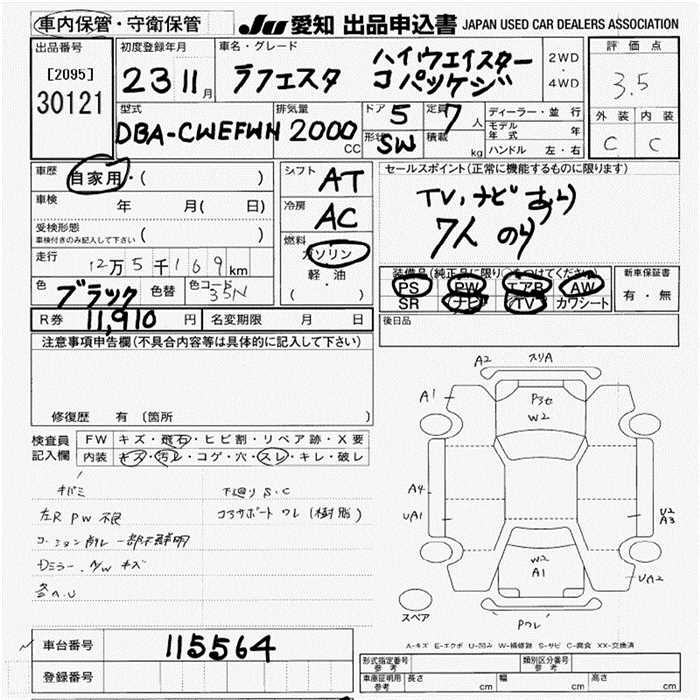 車内保管・守衛保管
JU 愛知 出品申込書 JAPAN USED CAR DEALERS ASSOCIATION
出品番号 [2095] 30121
初度登録年月 23 11月
車名・グレード ラフェスタ ハイウェイスター Jパッケージ
2WD・4WD
評価点 3.5
外装 内装
C C
型式 DBA-CWEFWN
排気量 2000 CC
ドア 5
形状 SW
定員 7人
積載 kg
ディーラー・並行
モデル年式 年
ハンドル 左・右
車歴 自家用・( )
車検 年 月( 日)
受検形態 ( )
車検付きのみ記入して下さい
走行 12万5千169km
色 ブラック 色替 色コード 35N
R券 11,910円 名変期限 月 日
シフト AT
冷房 AC
燃料 ガソリン
軽・油
( )
セールスポイント(正常に機能するものに限ります)
TV,ナビあり
7人のり
装備品(純正品に限り○をつけてください)
PS PW エアB AW
SR ナビ TV カワシート
新車保証書
有・無
後日品
注意事項申告欄(不具合内容等は具体的に記入して下さい)
修復歴 有 (箇所 )
検査員記入欄
FW キズ・飛石・ヒビ割・リペア跡・X要
内装 キズ・汚レ・コゲ・穴・スレ・キレ・破レ
キバミ 下廻りS.C
左R PW 不良 コアサポートワレ(樹脂)
コーションラベル 一部不鮮明
Dミラー、A/W キズ
各ヘ.U
A2 スリA
A1
P3セ
W2
A4
UA1
U2
A3
W2
A1
UA2
スペア
Pワレ
A-キズ E-エクボ U-凹み W-補修跡 S-サビ C-腐食 XX-交換済
車台番号 115564
登録番号
形式指定番号 参考
類別区分番号 参考
車庫証明用 参考 長さ cm 幅 cm 高さ cm